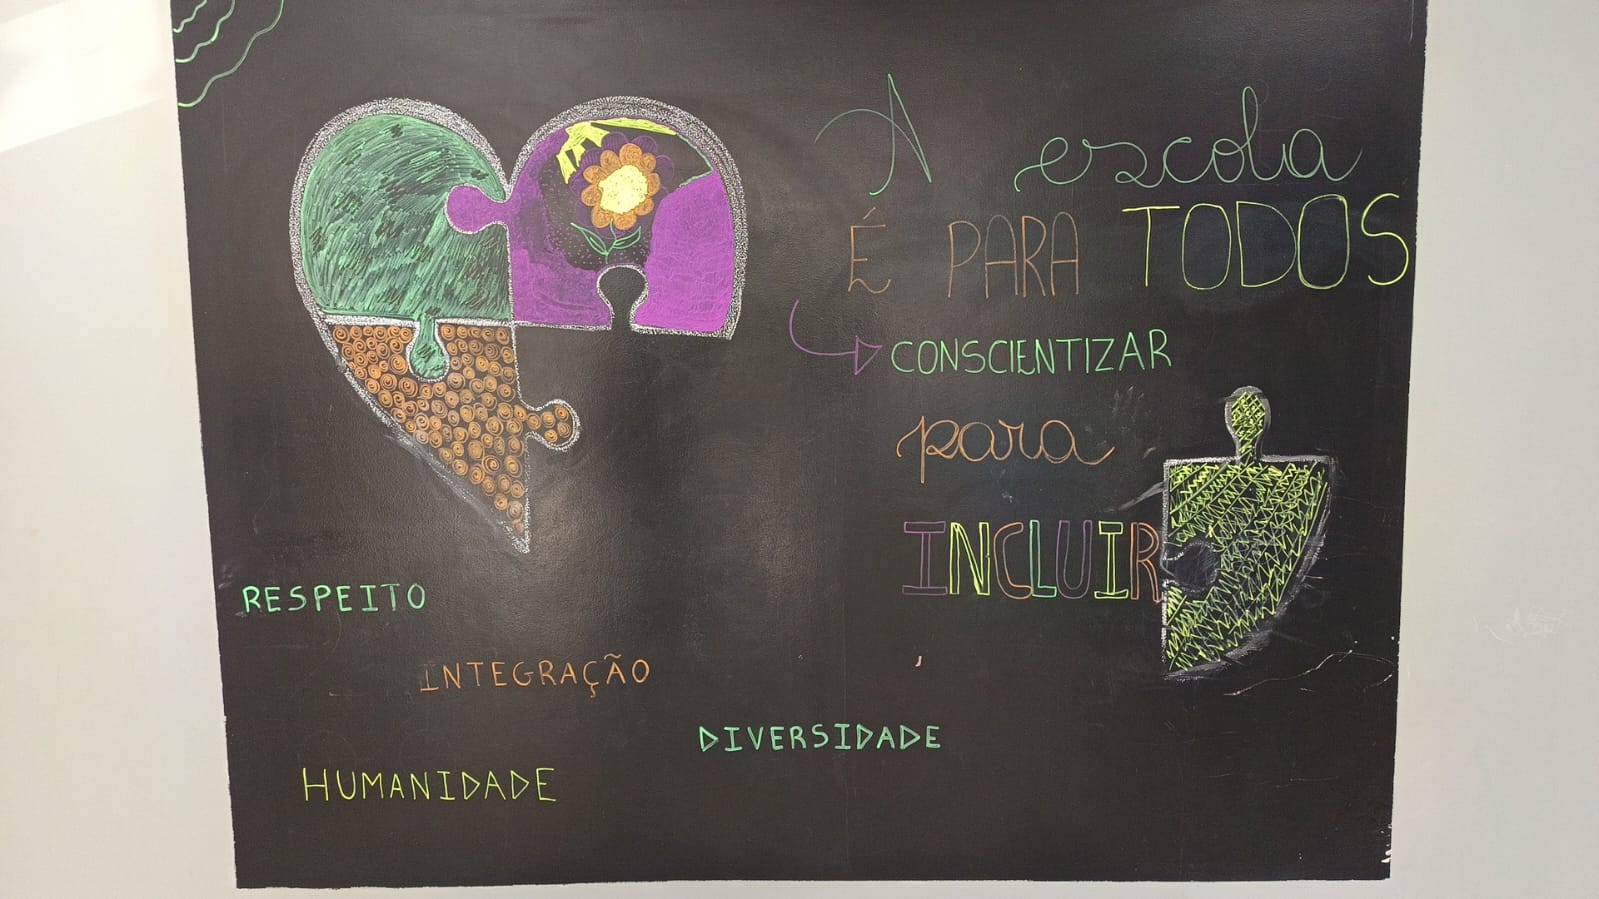 A escola
É PARA TODOS
CONSCIENTIZAR
para
INCLUIR
RESPEITO
INTEGRAÇÃO
DIVERSIDADE
HUMANIDADE